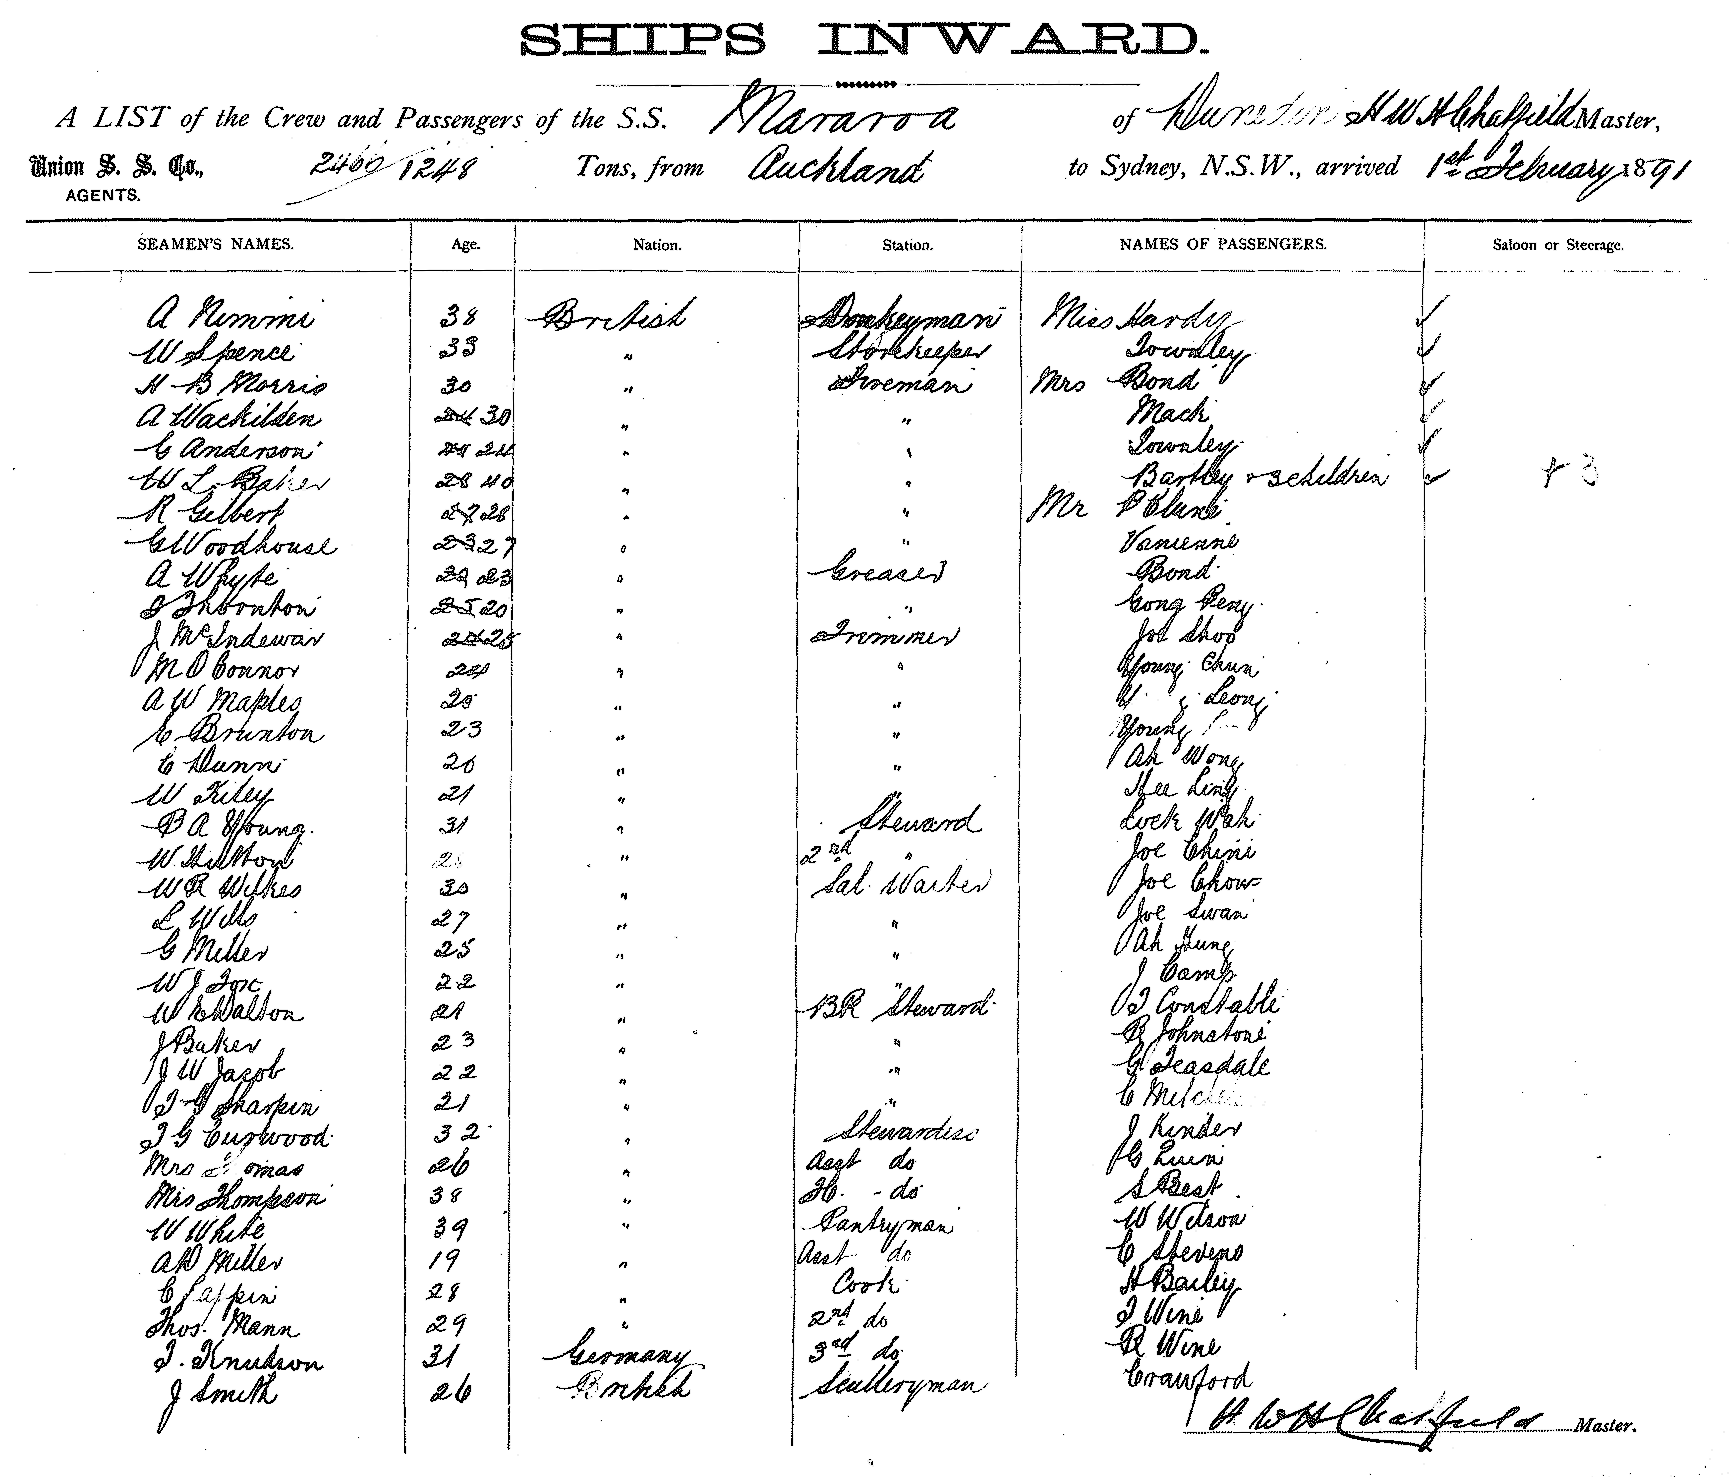 SHIPS INWARD.
A LIST of the Crew and Passengers of the S.S. Mararoa of Dunedin H W H Chatfield Master,
Union S. S. Co., 2460/1248 Tons, from Auckland to Sydney, N.S.W., arrived 1st February 1891
AGENTS.
SEAMEN'S NAMES. Age. Nation. Station. NAMES OF PASSENGERS. Saloon or Steerage.
A Nimmi 38 British Donkeyman Miss Hardy ✓
W Spence 33 " Storekeeper Townley ✓
H B Morris 30 " Fireman Mrs Bond ✓
A Wackilden 30 " " Mack ✓
G Anderson 24 " " Townley ✓
W L Baker 28 40 " " Bartley + 3 children ✓ + 3
R Gilbert 27 28 " " Mr
G Woodhouse 23 27 " "
A Whyte 29 23 " Greaser Bond
J Thornton 25 20 " " Gong Peng
J McIndewar 25 " Trimmer Joe Shoo
M O Connor 24 " " Young Chun
A W Maples 25 " " Leong
C Brunton 23 " " Young
C Dunn 26 " " Ah Wong
W Kiley 21 " " Hee Ling
B A Young 31 " Steward Lock Wah
W Hilton " 2nd " Joe Chini
W R Wilkes 30 " Sal. Waiter Joe Chow
L Wills 27 " " Joe Swan
G Miller 25 " " Ah Hung
W J Fox 22 " " J Camp
W E Walton 21 " BR Steward T Constable
J Baker 23 " " R Johnstone
J W Jacob 22 " " G Teasdale
T G Sharpin 21 " " C
T G Curwood 32 " Stewardess J Kinder
Mrs 26 " Asst do G Quin
Mrs Thompson 38 " do S Best
W White 39 " Pantryman W Wilson
A D Miller 19 " Asst do C Stevens
C 28 " Cook H Bailey
Thos. Mann 29 " 2nd do T Wine
T. Knudson 31 Germany 3rd do R Wine
J Smith 26 British Sculleryman Crawford
H W H Chatfield Master.